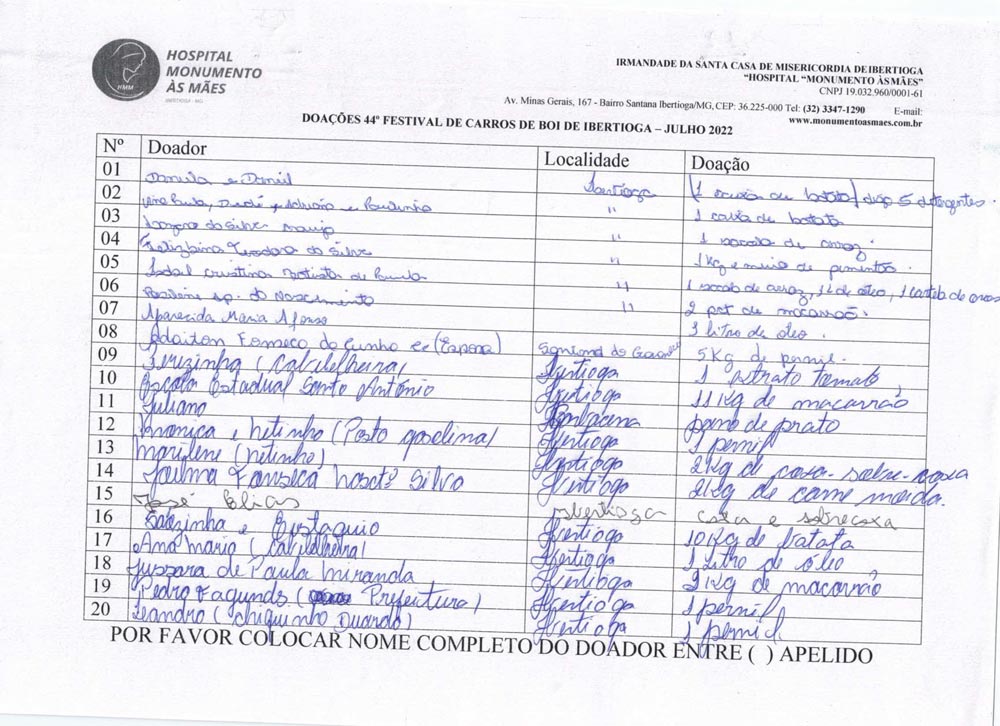 HOSPITAL
MONUMENTO
ÀS MÃES
IBERTIOGA - MG
HMM
IRMANDADE DA SANTA CASA DE MISERICORDIA DE IBERTIOGA
"HOSPITAL "MONUMENTO ÀS MÃES"
CNPJ 19.032.960/0001-61
Av. Minas Gerais, 167 - Bairro Santana Ibertioga/MG, CEP: 36.225-000 Tel: (32) 3347-1290 E-mail:
www.monumentoasmaes.com.br
DOAÇÕES 44º FESTIVAL DE CARROS DE BOI DE IBERTIOGA – JULHO 2022
Nº Doador Localidade Doação
01 e Daniel Ibertioga (1 caixa de batata) 5 detergentes.
02 Ana Paula, e " 1 caixa de batata
03 da Silva Araujo " 1 sacola de arroz
04 Teodora da Silva " 1kg e meio de pimentão.
05 Cristina Batista de Paula " 1 de arroz, 1 de óleo, 1 cartela de ovos
06 do Nascimento " 2 pct de macarrão
07 Aparecida Maria Afonso " 1 litro de óleo.
08 Adailton Fonseca da Cunha 5Kg de pernil.
09 Terezinha (Cabeleireira) Ibertioga 1 estrato tomate
10 Escola Estadual Santo Antônio Ibertioga 11Kg de macarrão
11 Juliano Barbacena pano de prato
12 Monica e Netinho (Posto gasolina) Ibertioga 1 pernil
13 Marilene (netinho) Ibertioga 2Kg de coxa-sobre-coxa
14 Fonseca Silva Ibertioga 2Kg de carne moída.
15 José Elias Ibertioga coxa e sobrecoxa
16 e Eustaquio Ibertioga 10Kg de batata
17 Ana Maria (Cabeleireira) Ibertioga 1 litro de óleo
18 Jussara de Paula Miranda Ibertioga 2Kg de macarrão
19 Pedro Fagundes ( Prefeitura) Ibertioga 1 pernil
20 Leandro (Chiquinho Duardo) Ibertioga 1 pernil
POR FAVOR COLOCAR NOME COMPLETO DO DOADOR ENTRE ( ) APELIDO